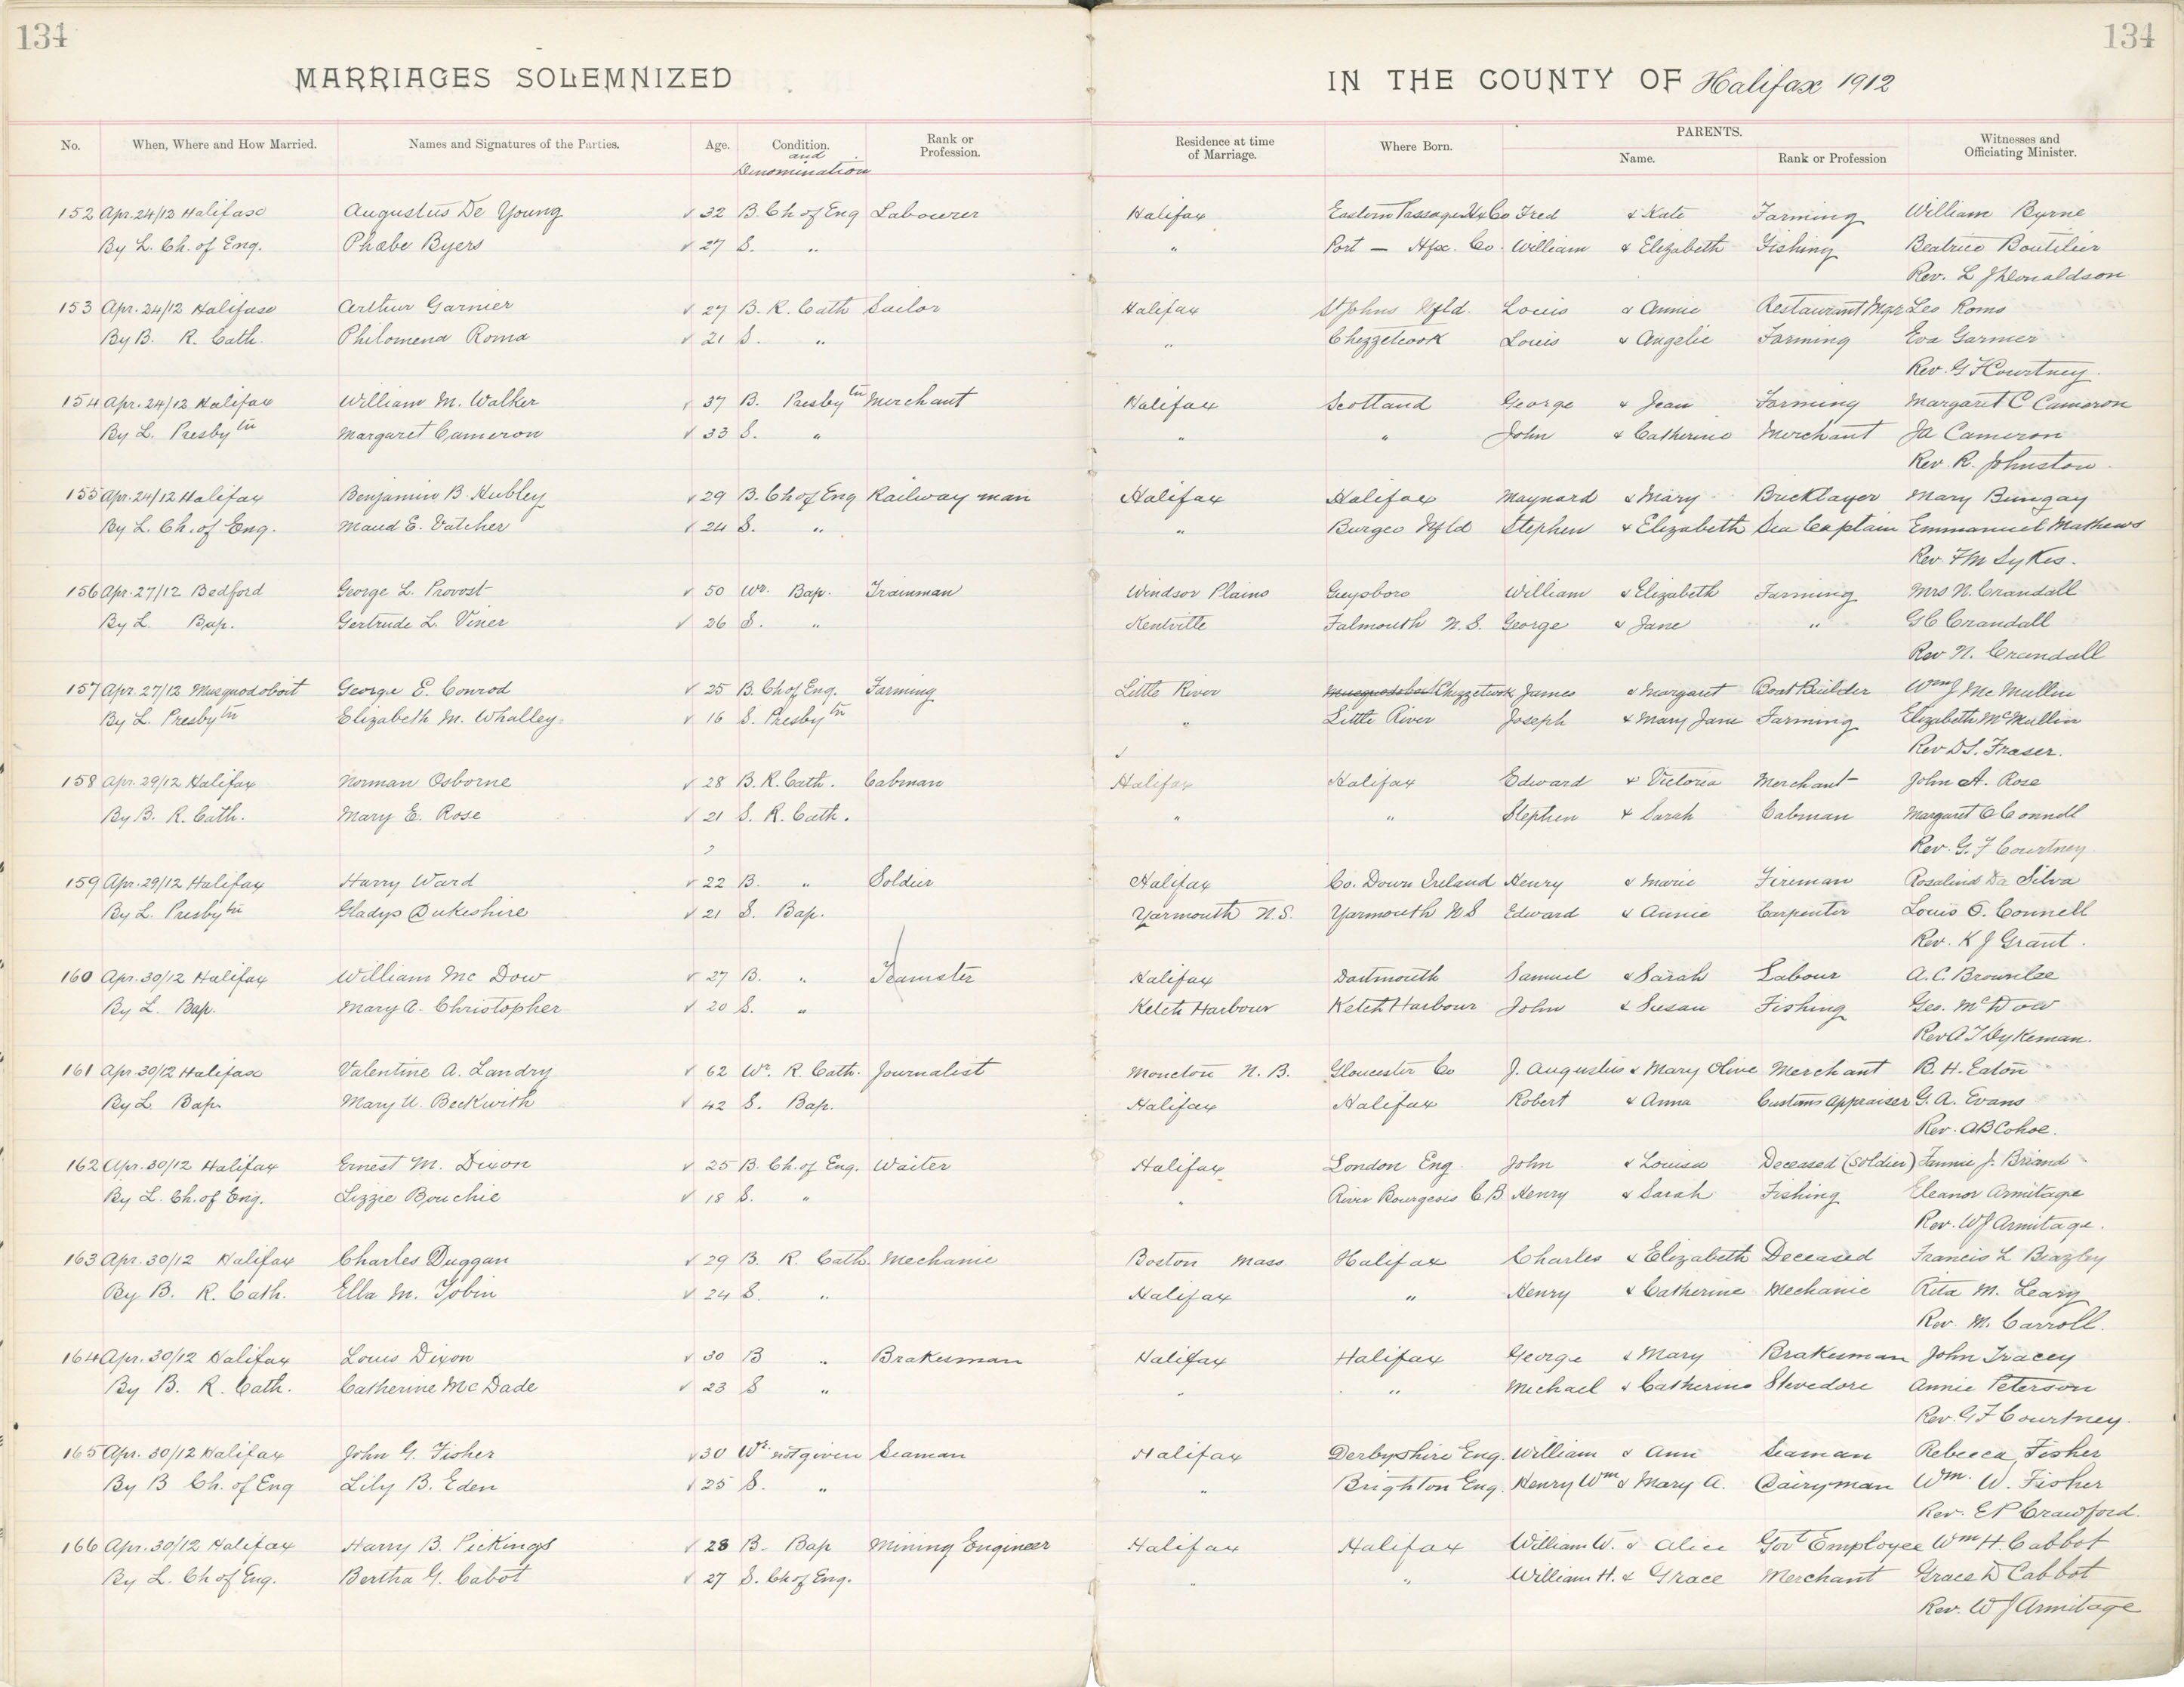 134 134
MARRIAGES SOLEMNIZED IN THE COUNTY OF Halifax 1912
No. When, Where and How Married. Names and Signatures of the Parties. Age. Condition. and Denomination Rank or Profession. Residence at time of Marriage. Where Born. PARENTS. Name. Rank or Profession Witnesses and Officiating Minister.
152 Apr. 24/12 Halifax Augustus De Young 32 B. Ch of Eng Labourer Halifax Eastern Passage Hx Co Fred & Kate Farming William Byrne
By L. Ch. of Eng. Phœbe Byers 27 S. " " Port — Hfx. Co. William & Elizabeth Fishing Beatrice Boutilier
Rev. L J Donaldson
153 Apr. 24/12 Halifax Arthur Garnier 27 B. R. Cath Sailor Halifax St Johns Nfld. Louis & Annie Restaurant Mgr Leo Roma
By B. R. Cath. Philomena Roma 21 S. " " Chezzetcook Louis & Angelie Farming Eva Garnier
Rev. G F Courtney.
154 Apr. 24/12 Halifax William M. Walker 37 B. Presbytn Merchant Halifax Scotland George & Jean Farming Margaret C Cameron
By L. Presbytn Margaret Cameron 33 S. " " " John & Catherine Merchant JA Cameron
Rev. R. Johnston.
155 Apr. 24/12 Halifax Benjamin B. Hubley 29 B. Ch of Eng Railway man Halifax Halifax Maynard & Mary Bricklayer Mary Bungay
By L. Ch. of Eng. Maud E. Vatcher 24 S. " " Burgeo Nfld Stephen & Elizabeth Sea Captain Emmanuel Mathews
Rev. F M Sykes.
156 Apr. 27/12 Bedford George L. Provost 50 Wr. Bap. Trainman Windsor Plains Guysboro William & Elizabeth Farming Mrs N. Crandall
By L. Bap. Gertrude L. Viner 26 S. " Kentville Falmouth N.S. George & Jane " G C Crandall
Rev N. Crandall
157 Apr. 27/12 Musquodoboit George E. Conrod 25 B. Ch of Eng. Farming Little River Musquodoboit Chezzetcook James & Margaret Boat Builder Wm J Mc Mullin
By L. Presbytn Elizabeth M. Whalley 16 S. Presbytn " Little River Joseph & Mary Jane Farming Elizabeth McMullin
Rev D S. Fraser.
158 Apr. 29/12 Halifax Norman Osborne 28 B. R. Cath. Cabman Halifax Halifax Edward & Victoria Merchant John A. Rose
By B. R. Cath. Mary E. Rose 21 S. R. Cath. " " Stephen & Sarah Cabman Margaret O Connell
Rev. G. F Courtney.
159 Apr. 29/12 Halifax Harry Ward 22 B. " Soldier Halifax Co. Down Ireland Henry & Marie Fireman Rosalind Da Silva
By L. Presbytn Gladys Dukeshire 21 S. Bap. Yarmouth N.S. Yarmouth N S Edward & Annie Carpenter Louis O. Connell
Rev. K J Grant.
160 Apr. 30/12 Halifax William Mc Dow 27 B. " Teamster Halifax Dartmouth Samuel & Sarah Labour A. C. Brownlee
By L. Bap. Mary A. Christopher 20 S. " Ketch Harbour Ketch Harbour John & Susan Fishing Geo. McDow
Rev A T Dykeman.
161 Apr. 30/12 Halifax Valentine A. Landry 62 Wr. R. Cath. Journalist Moncton N. B. Gloucester Co J. Augustus & Mary Olive Merchant B. H. Eaton
By L Bap. Mary U. Beckwith 42 S. Bap. Halifax Halifax Robert & Anna Customs Appraiser G. A. Evans
Rev. A B Cohoe.
162 Apr. 30/12 Halifax Ernest M. Dixon 25 B. Ch. of Eng. Waiter Halifax London Eng. John & Louisa Deceased (Soldier) Fannie J. Briand
By L. Ch. of Eng. Lizzie Bouchie 18 S. " " River Bourgeois C. B Henry & Sarah Fishing Eleanor Armitage
Rev. W J Armitage.
163 Apr. 30/12 Halifax Charles Duggan 29 B. R. Cath. Mechanic Boston Mass Halifax Charles & Elizabeth Deceased Francis L Beazley
By B. R. Cath. Ella M. Tobin 24 S. " Halifax " Henry & Catherine Mechanic Rita M. Leary
Rev. M. Carroll.
164 Apr. 30/12 Halifax Louis Dixon 30 B " Brakesman Halifax Halifax George & Mary Brakesman John Tracey
By B. R. Cath. Catherine Mc Dade 23 S " " " Michael & Catherine Stevedore Annie Peterson
Rev. G F Courtney.
165 Apr. 30/12 Halifax John G. Fisher 30 Wr. not given Seaman Halifax Derbyshire Eng. William & Ann Seaman Rebecca Fisher
By B Ch. of Eng Lily B. Eden 25 S. " " Brighton Eng. Henry Wm & Mary A. Dairyman Wm. W. Fisher
Rev. E P Crawford.
166 Apr. 30/12 Halifax Harry B. Pickings 28 B. Bap Mining Engineer Halifax Halifax William W. & Alice Govt Employee Wm H. Cabbot
By L. Ch of Eng. Bertha G. Cabot 27 S. Ch of Eng. " " William H. & Grace Merchant Grace D Cabbot
Rev. W J Armitage